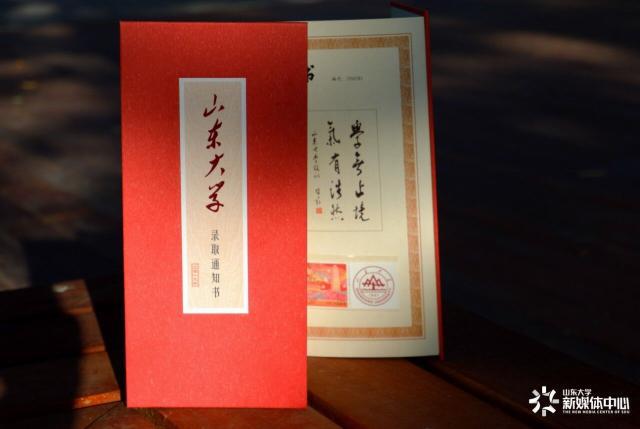 山东大学
录取通知书
书
學無止境
氣有浩然
山东大学校训
山东大学
新媒体中心
THE NEW MEDIA CENTER OF SDU